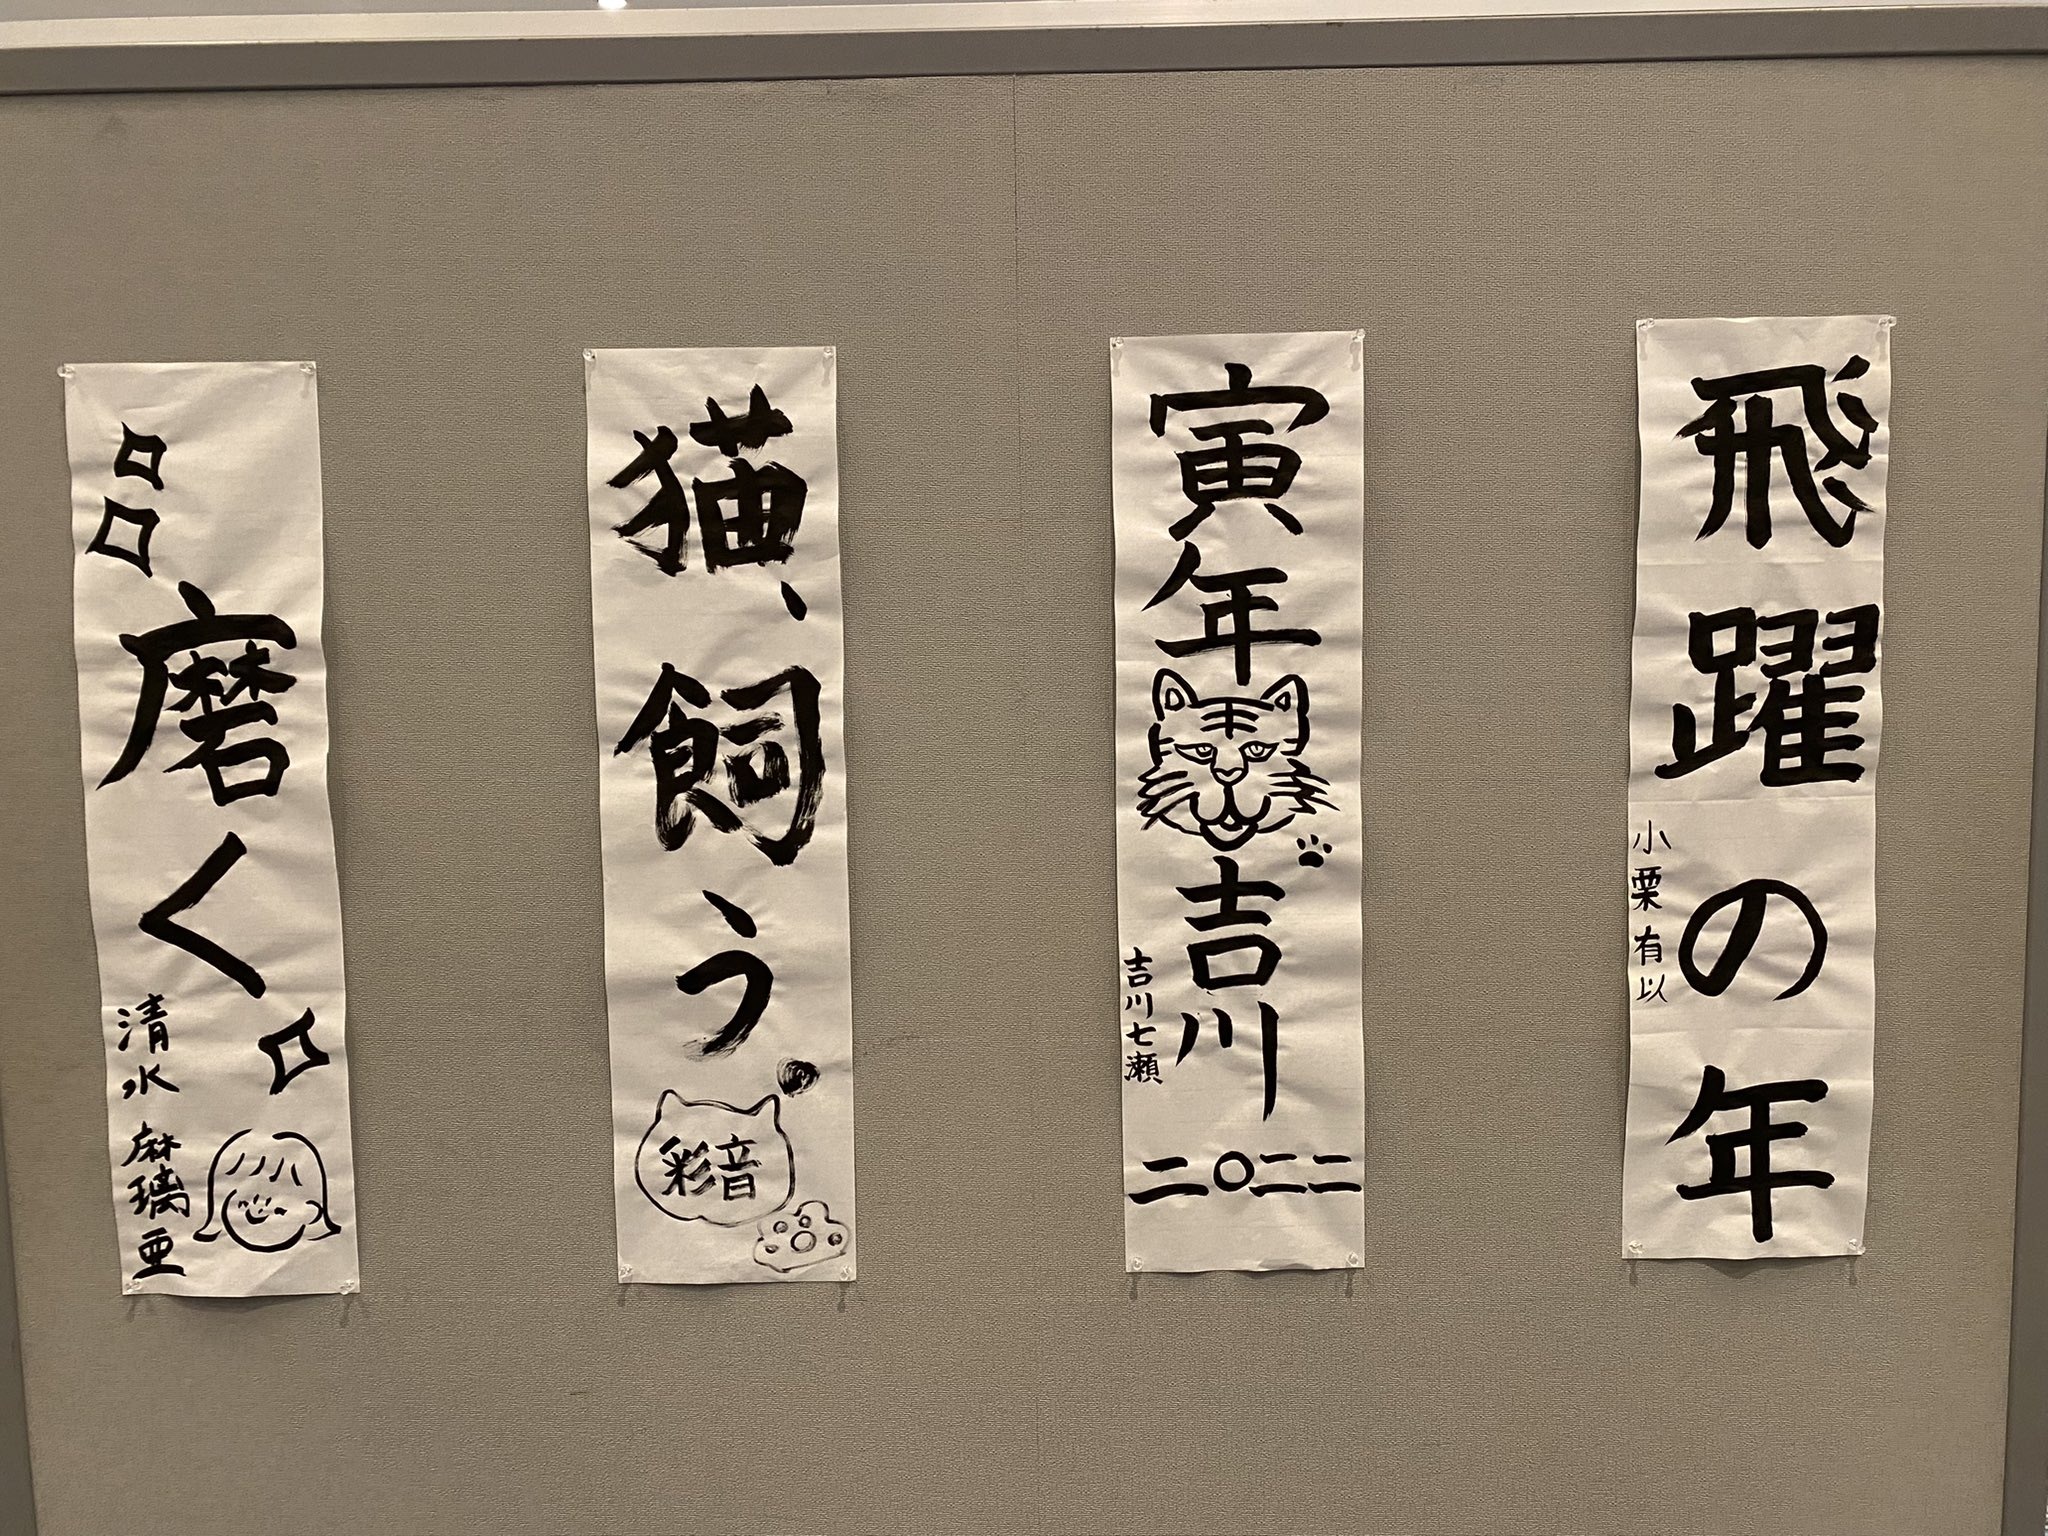 飛躍の年
小栗有以
寅年
吉川
二〇二二
吉川七瀬
猫、飼う
彩音
磨く
清水麻璃亜